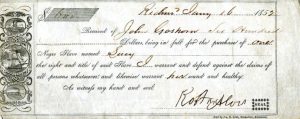 Richmd Jany 16 1852
Received of John Goshorn Six Hundred
Dollars, being in full for the purchase of one
Negro Slave named Lucy
the right and title of said Slave I warrant and defend against the claims of
all persons whatsoever and likewise warrant her sound and healthy
As witness my hand and seal
SEAL